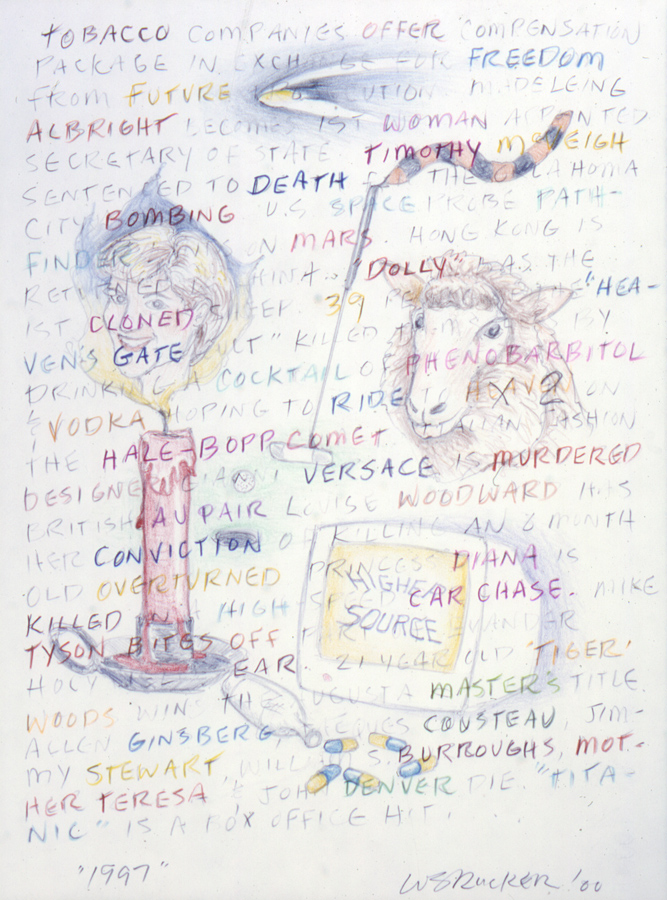 TOBACCO COMPANIES OFFER COMPENSATION
PACKAGE IN EXCHANGE FOR FREEDOM
FROM FUTURE CUTION. MADELEING
ALBRIGHT BECOMES 1ST WOMAN APPOINTED
SECRETARY OF STATE. TIMOTHY McVEIGH
SENTENCED TO DEATH FOR THE OKLAHOMA
CITY BOMBING. U.S SPACE PROBE PATH-
FINDER ON MARS. HONG KONG IS
RETURNED CHINA. "DOLLY" WAS THE
1ST CLONED SHEEP. 39 "HEA-
VEN'S GATE CULT" KILLED BY
DRINKING A COCKTAIL OF PHENOBARBITOL
& VODKA HOPING TO RIDE TO HEAVEN ON
X 2
THE HALE-BOPP COMET. ITALIAN FASHION
DESIGNER GIANNI VERSACE IS MURDERED
BRITISH AU PAIR LOUISE WOODWARD HAS
HER CONVICTION OF KILLING AN 8 MONTH
OLD OVERTURNED. PRINCESS DIANA IS
KILLED IN A HIGH-SPEED CAR CHASE. MIKE
HIGHER
SOURCE
TYSON BITES OFF EVANDER
HOLYFIELD EAR. 21 YEAR OLD 'TIGER'
WOODS WINS THE AUGUSTA MASTER'S TITLE.
ALLEN GINSBERG, JACQUES COUSTEAU, JIM-
MY STEWART, WILLIAM S. BURROUGHS, MOT-
HER TERESA & JOHN DENVER DIE. "TITA-
NIC" IS A BOX OFFICE HIT.
"1997"
WS RUCKER '00